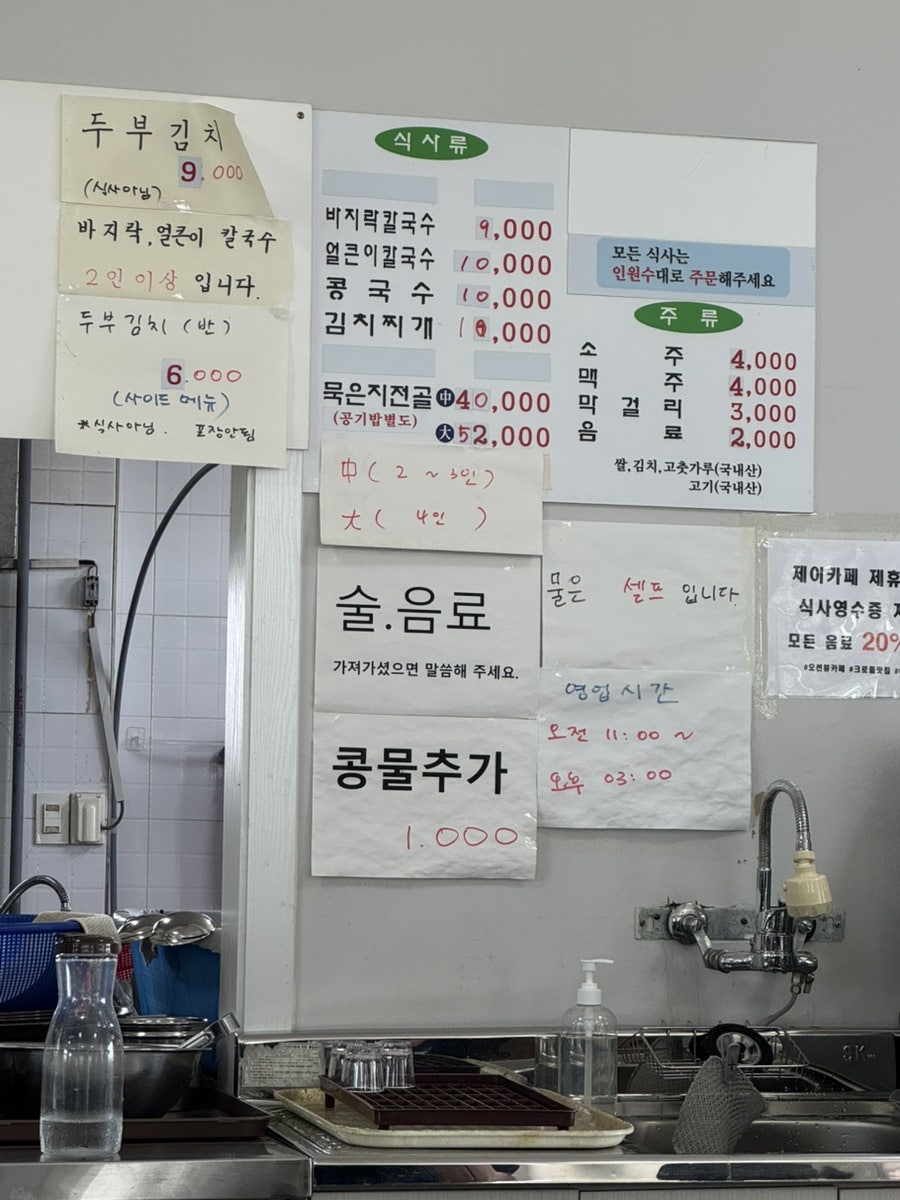 두부김치
9,000
(식사아님)
바지락,얼큰이 칼국수
2인이상 입니다.
두부김치 (반)
6.000
(사이드메뉴)
*식사아님. 포장안됨
식사류
바지락칼국수 9,000
얼큰이칼국수 10,000
콩국수 10,000
김치찌개 10,000
묵은지전골 中 40,000
(공기밥별도)
大 52,000
中( 2 ~ 3인)
大( 4인 )
모든 식사는
인원수대로 주문해주세요
주류
소주 4,000
맥주 4,000
막걸리 3,000
음료 2,000
쌀,김치,고춧가루(국내산)
고기(국내산)
술.음료
가져가셨으면 말씀해 주세요.
콩물추가
1.000
물은 셀프 입니다.
영업시간
오전 11:00 ~
오후 03:00
제이카페 제휴
식사영수증
모든 음료 20%
#오션뷰카페 #크로플맛집